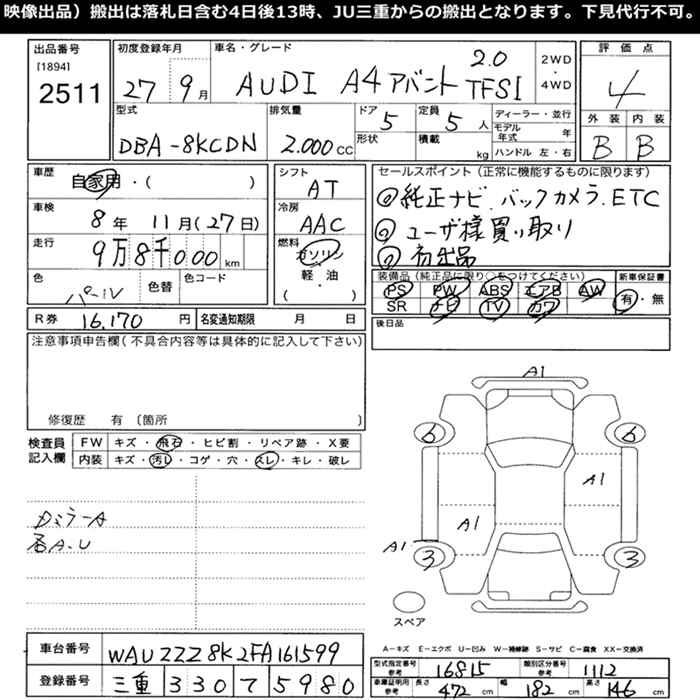 映像出品）搬出は落札日含む4日後13時、JU三重からの搬出となります。下見代行不可。
出品番号
[1894]
2511
初度登録年月
27年 9月
車名・グレード
AUDI A4アバント 2.0 TFSI
2WD・4WD
評価点
4
外装 内装
B B
型式
DBA-8KCDN
排気量
2.000cc
ドア
5
形状
定員
5人
積載
kg
ディーラー・並行
モデル年式 年
ハンドル 左・右
車歴
自家用・( )
車検
8年 11月(27日)
走行
9万8千000km
色
パール
色替
色コード
シフト
AT
冷房
AAC
燃料
ガソリン
軽・油
( )
セールスポイント（正常に機能するものに限ります）
◎純正ナビ.バックカメラ.ETC
◎ユーザ様買い取り
◎初出品
装備品（純正品に限り○をつけてください）
PS PW ABS エアB AW
SR ナビ TV カワ
新車保証書
有・無
R券 16.170円
名変通知期限 月 日
後日品
注意事項申告欄（不具合内容等は具体的に記入して下さい）
修復歴 有〔箇所 〕
検査員記入欄
FW キズ・飛石・ヒビ割・リペア跡・X要
内装 キズ・汚レ・コゲ・穴・スレ・キレ・破レ
DミラーA
各A.U
A1
6 6
A1
A1
A1
3 3
スペア
A－キズ E－エクボ U－凹み W－補修跡 S－サビ C－腐食 XX－交換済
車台番号
WAUZZZ8K2FA161599
登録番号
三重 330 て 5980
型式指定番号 参考
16815
類別区分番号 参考
1112
車庫証明用 参考
長さ 472cm
幅 182cm
高さ 146cm